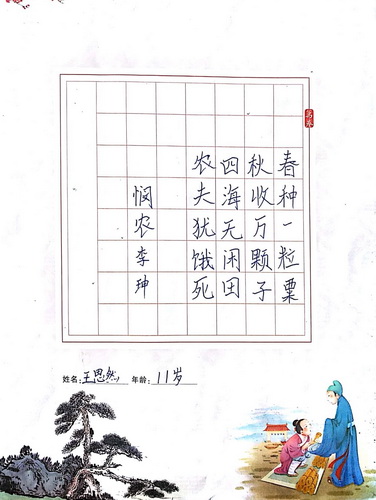 春种一粒粟
秋收万颗子
四海无闲田
农夫犹饿死
悯农李珅
姓名:王思然 年龄:11岁